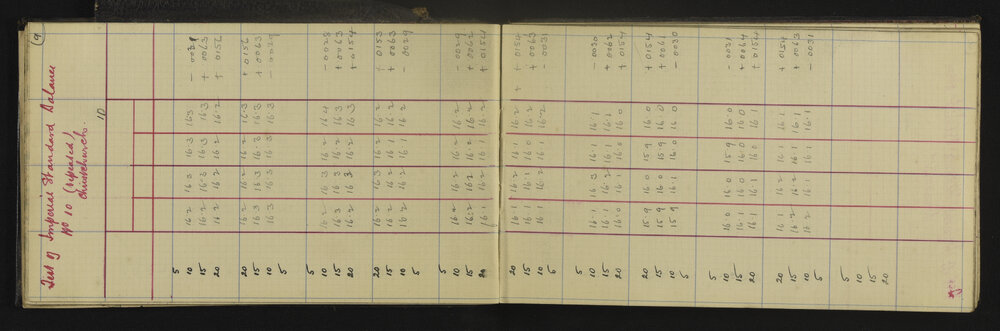 9
Test of Imperial Standard Balance
No 10 (repeated)
Christchurch.
10
5
10 16.2 16.3 16.3 16.3 - 0029
15 16.2 16.3 16.3 16.3 + 0063
20 16.2 16.2 16.2 16.2 + 0156
20 16.2 16.2 16.2 16.3 + 0156
15 16.3 16.3 16.3 16.3 + 0063
10 16.3 16.3 16.2 16.3 - 0029
5
5
10 16.2 16.3 16.2 16.4 - 0028
15 16.3 16.3 16.2 16.3 + 0063
20 16.2 16.3 16.2 16.3 + 0154
20 16.2 16.3 16.2 16.2 + 0153
15 16.2 16.2 16.1 16.2 + 0063
10 16.2 16.2 16.1 16.2 - 0029
5
5
10 16.2 16.2 16.2 16.2 - 0029
15 16.2 16.2 16.2 16.2 + 0062
20 16.1 16.2 16.1 16.2 + 0154
20 16.1 16.1 16.1 16.2 + 0154
15 16.1 16.1 16.0 16.1 + 0063
10 16.1 16.2 16.1 16.2 - 0031
5
5
10 16.1 16.3 16.1 16.1 - 0030
15 16.1 16.2 16.1 16.1 + 0062
20 16.0 16.1 16.0 16.0 + 0154
20 15.9 16.0 15.9 16.0 + 0154
15 15.9 16.0 15.9 16.0 + 0061
10 15.9 16.1 16.0 16.0 - 0030
5
5
10 16.0 16.0 15.9 16.0 - 0031
15 16.1 16.0 16.0 16.0 + 0064
20 16.1 16.1 16.0 16.1 + 0154
20 16.1 16.2 16.1 16.1 + 0154
15 16.2 16.2 16.1 16.1 + 0063
10 16.2 16.1 16.1 16.1 - 0031
5
5
10
15
20